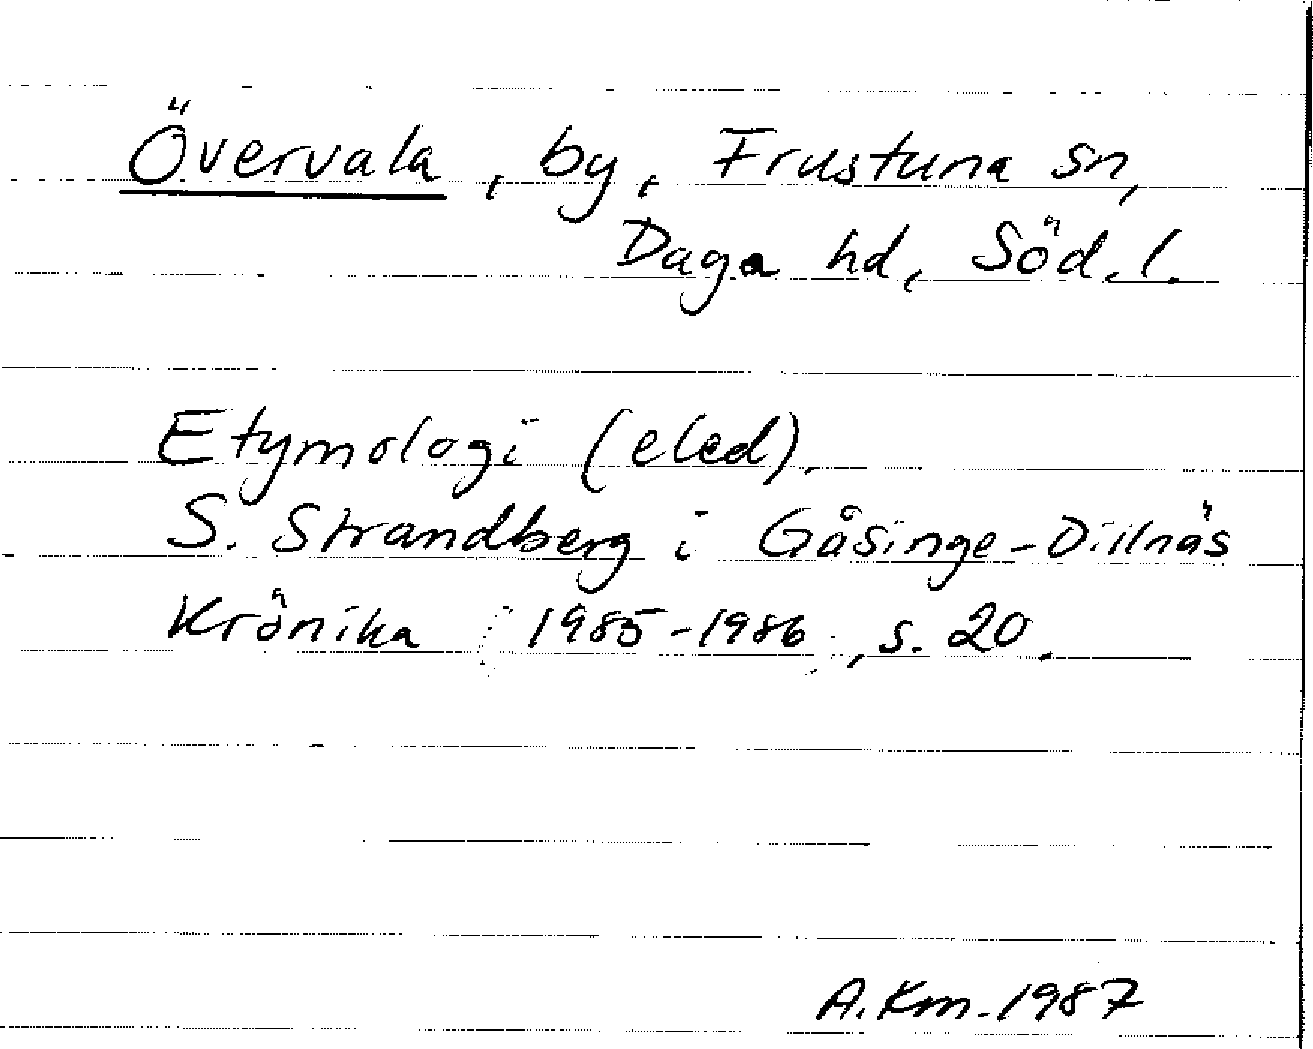 Övervala, by, Frustuna sn,
Daga hd, Söd.l.
Etymologi (eled).
S. Strandberg i Gåsinge-Dillnäs
Krönika (1985-1986), s. 20.
A.Km. 1987